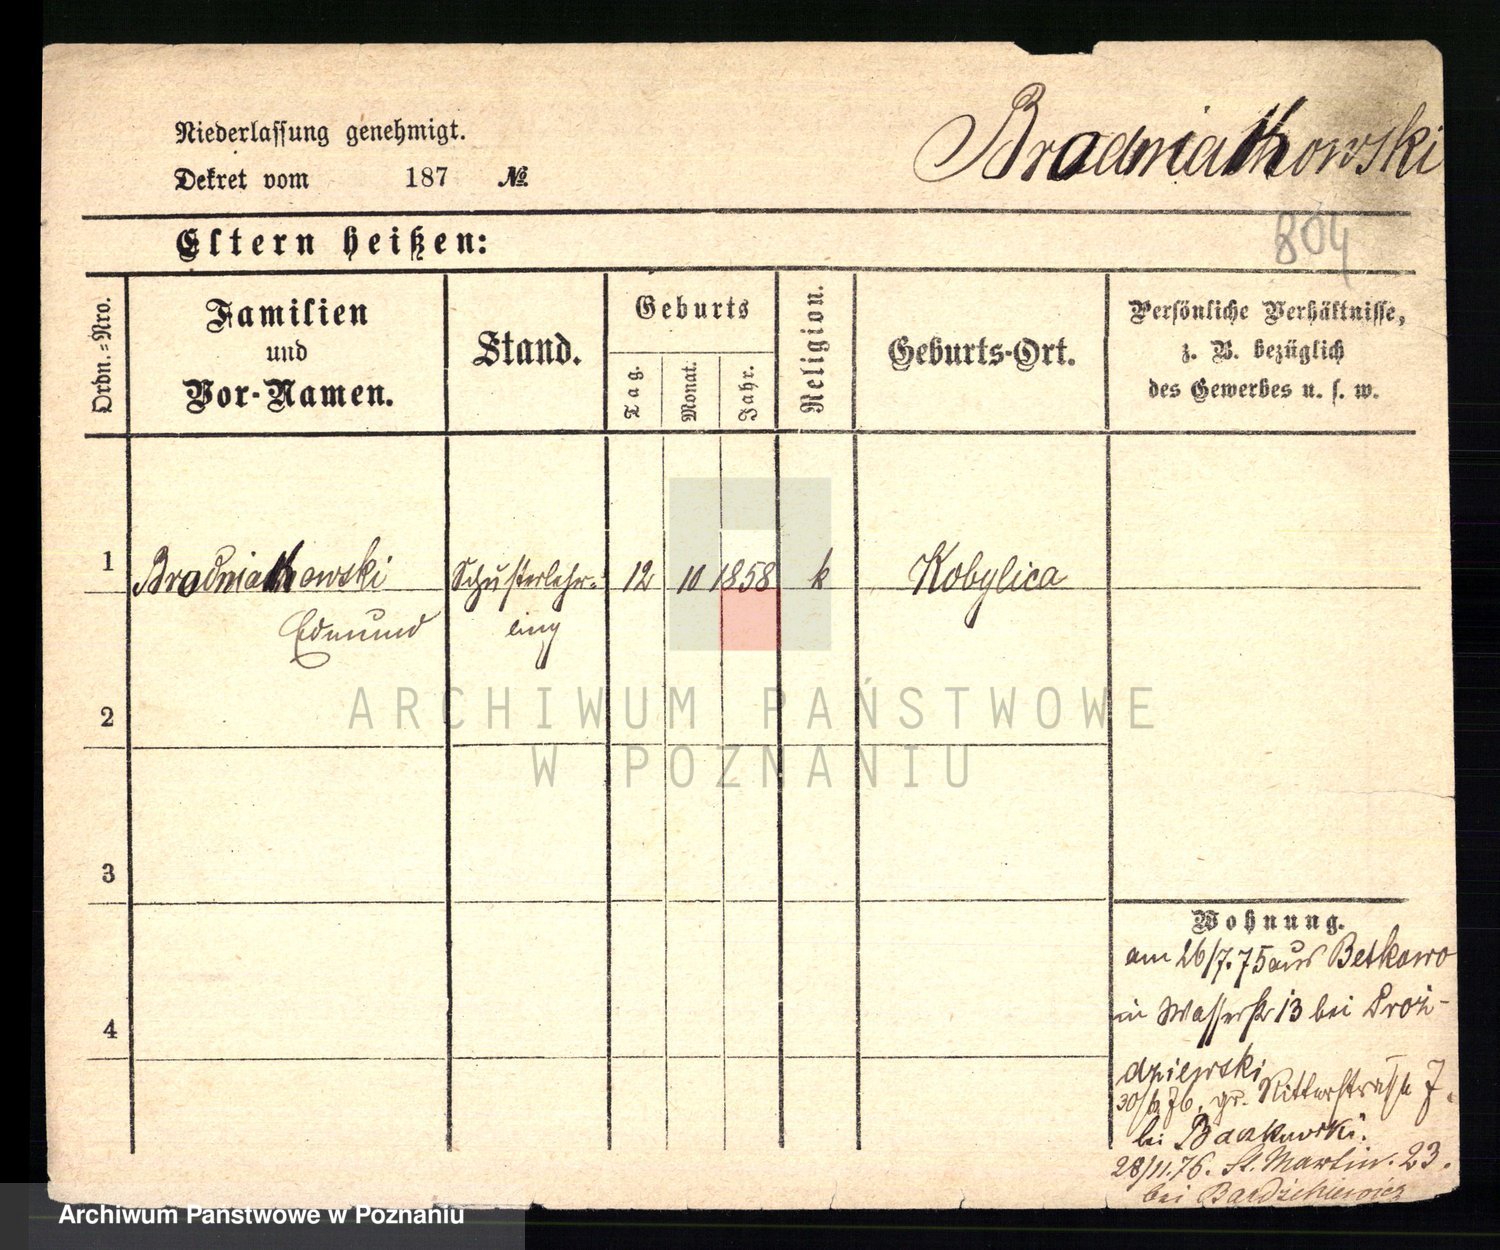 Niederlassung genehmigt.
Dekret vom 187 №
Bradniakowski
804
Eltern heißen:
Ordn.-Nro.
Familien
und
Vor-Namen.
Stand.
Geburts
Tag.
Monat.
Jahr.
Religion.
Geburts-Ort.
Persönliche Verhältnisse,
z. B. bezüglich
des Gewerbes u. s. w.
1 Bradniakowski Schusterlehr- 12 10 1858 k Kobylica
Edmund ling
2
3
4
Wohnung.
am 26/7. 75 aus Betkowo
in Wasserstr 13 bei
30/6 76. gr. Ritterstraße 7.
bei
28/11. 76. St. Martin. 23.
bei
ARCHIWUM PAŃSTWOWE
W POZNANIU
Archiwum Państwowe w Poznaniu